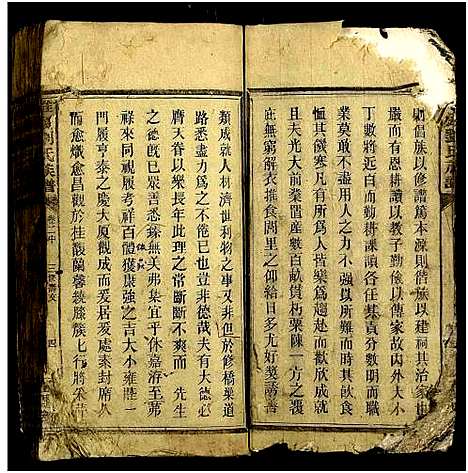 則倡族以修譜篤本源則偕族以建祠其治家也
嚴而有恩耕讀以教子勤儉以傳家故內外大小
丁數時百以勤耕課讀各任其責而無少曠而職
業莫惰尤可異者用人之力不強以所難而時其飲食
恤其饑寒凡有所為人皆樂為趨赴而歡欣成
且夫光大前業置產數百畝貫朽粟陳一方之豐
庶無窮解衣食推食周里之仰給日多尤好獎誘善
類成就人材濟世利物之事又非但於修橋梁道
路悉盡力為之不倦已也豈非德哉夫有大德必
膺天眷以衆長年此理之常斷斷不爽 先生
之德也既已粲善悉臻無美弗集宜乎休嘉洊至第
祿來同將見履考祥百體獲康强之吉大小雍睦一
門履亨泰之慶大厦觀成而爰居爰處素封縣久
而愈熾愈昌觀於桂馥蘭馨餘滕簇七行將采芹
劉氏族譜
卷二中
三
四